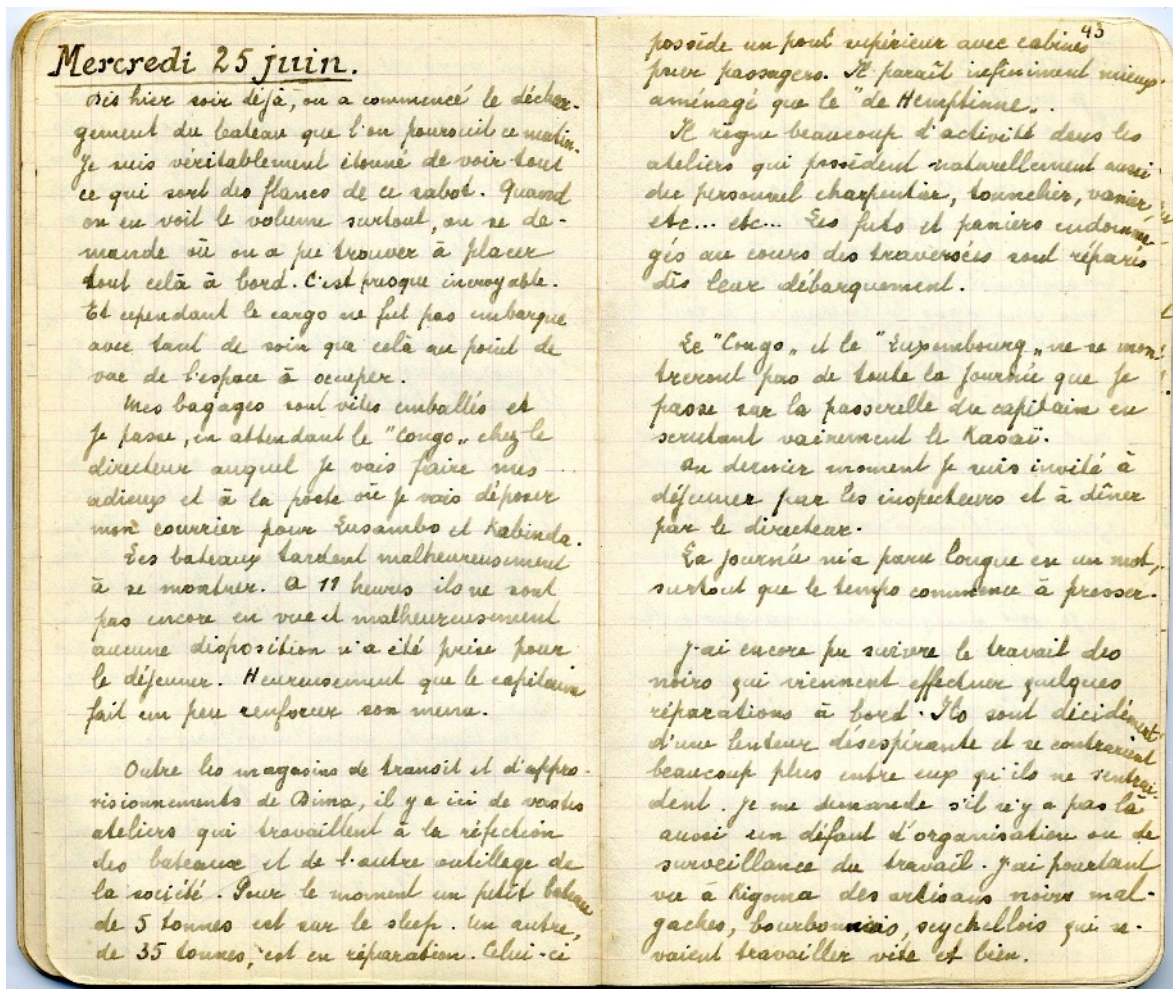 Mercredi 25 juin.
Dès hier soir déjà, on a commencé le déchar-
gement du bateau que l'on poursuit ce matin.
Je suis véritablement étonné de voir tout
ce qui sort des flancs de ce sabot. Quand
on en voit le volume surtout, on se de-
mande où on a pu trouver à placer
tout celà à bord. C'est presque incroyable.
Et cependant le cargo ne fut pas embarqué
avec tant de soin que celà au point de
vue de l'espace à occuper.
Mes bagages sont vites emballés et
je passe, en attendant le "Congo„ chez le
directeur auquel je vais faire mes
adieux et à la poste où je vais déposer
mon courrier pour Lusambo et Kabinda.
Les bateaux tardent malheureusement
à se montrer. A 11 heures ils ne sont
pas encore en vue et malheureusement
aucune disposition n'a été prise pour
le déjeuner. Heureusement que le capitaine
fait un peu renforcer son menu.
Outre les magasins de transit et d'appro-
visionnements de Dima, il y a ici de vastes
ateliers qui travaillent à la réfection
des bateaux et de l'autre outillage de
la société. Pour le moment un petit bateau
de 5 tonnes est sur le sleep. Un autre,
de 35 tonnes, est en réparation. Celui-ci
43
possède un pont supérieur avec cabines
pour passagers. Il paraît infiniment mieux
aménagé que le "de Hemptinne„.
Il règne beaucoup d'activité dans les
ateliers qui possèdent naturellement aussi
du personnel charpentier, tonnelier, vanier,
etc... etc... Les futs et paniers endomma-
gés au cours des traversées sont réparés
dès leur débarquement.
Le "Congo„ et le "Luxembourg„ ne se mon-
treront pas de toute la journée que je
passe sur la passerelle du capitain en
scrutant vainement le Kasaï.
Au dernier moment je suis invité à
déjeuner par les inspecteurs et à dîner
par le directeur.
La journée m'a paru longue en un mot,
surtout que le temps commence à presser.
J'ai encore pu suivre le travail des
noirs qui viennent effectuer quelques
réparations à bord. Ils sont décidément
d'une lenteur désespérante et se contrarient
beaucoup plus entre eux qu'ils ne s'entrai-
dent. Je me demande s'il n'y a pas là
aussi un défaut d'organisation ou de
surveillance du travail. J'ai pourtant
vu à Kigoma des artisans noirs mal-
gaches, bourbonnais, seychellois qui sa-
vaient travailler vite et bien.